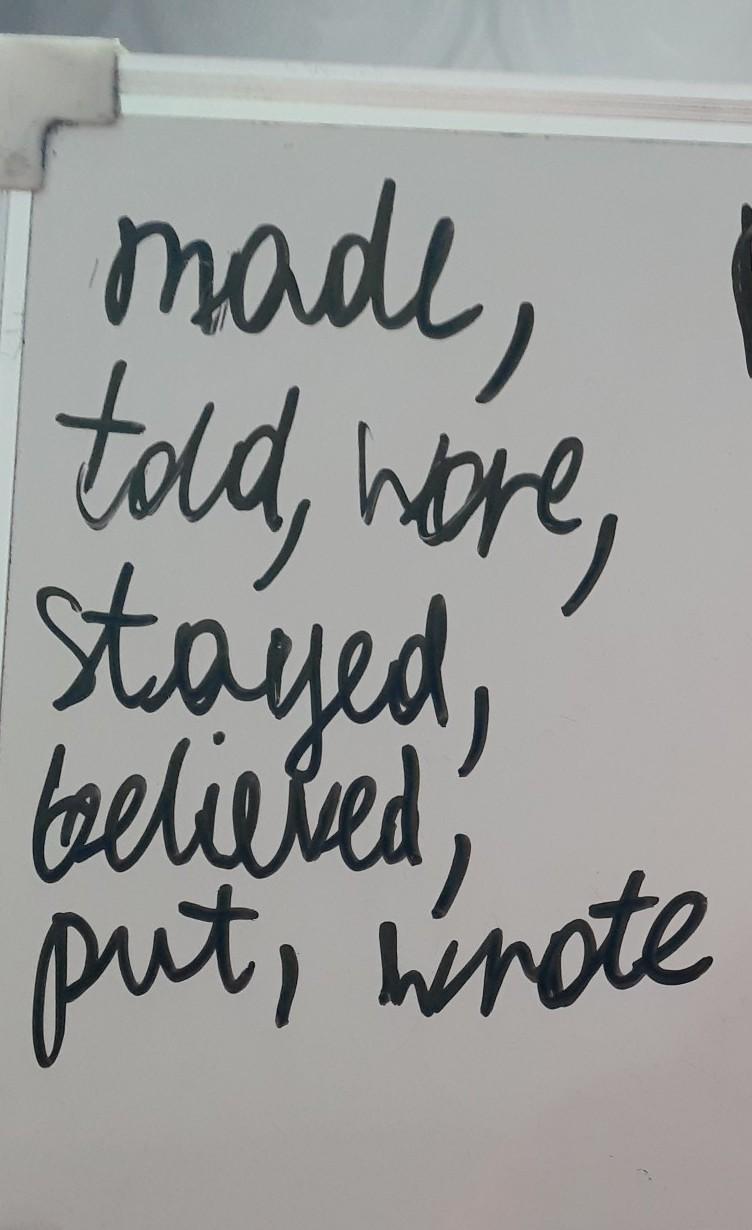 made,
told, wore,
stayed,
believed,
put, wrote